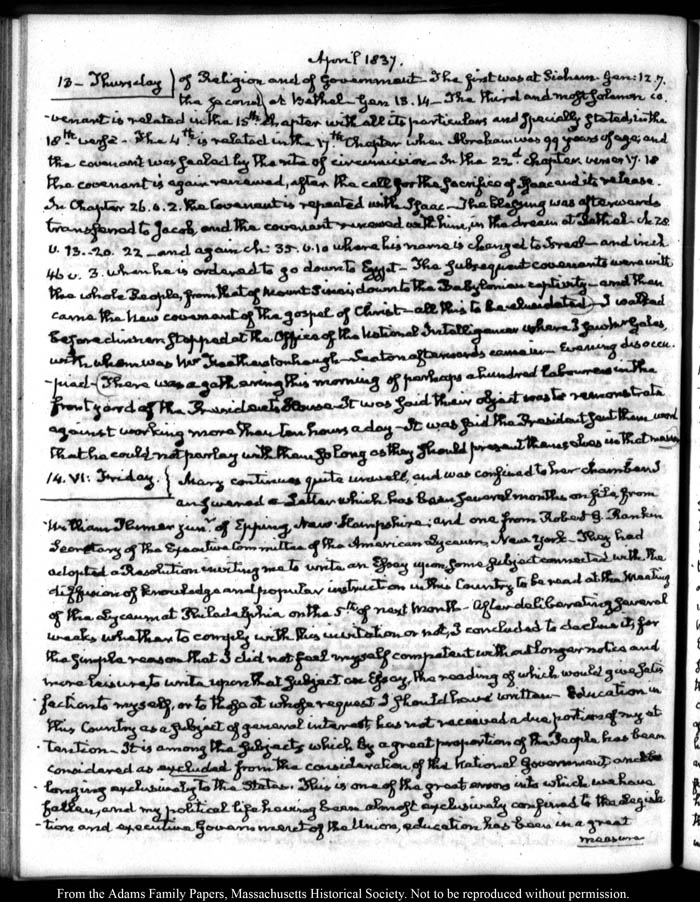 April 1837.
13 – Thursday } of Religion and of Government – The first was at Sichem. Gen: 12.7.
the second, at Bethel – Gen 13.14 – The third and most solemn co-
-venant is related in the 15th Chapter with all its particulars and specially stated, in the
18th verse – The 4th is related in the 17th Chapter when Abraham was 99 years of age, and
the covenant was sealed by the rite of circumcision – In the 22d chapter, verses 17. 18
the covenant is again renewed, after the call for the sacrifice of Isaac and its release.
In Chapter 26. v. 2. the Covenant is repeated with Isaac – The blessing was afterwards
transferred to Jacob, and the covenant renewed with him, in the dream at Bethel – ch 28.
v. 13. – 20. 22 – and again ch: 35. v. 10 where his name is changed to Israel – and in ch
46 v. 3. when he is ordered to go down to Egypt – The subsequent covenants were with
the whole People, from that of Mount Sinai, down to the Babylonian captivity – and then
came the New covenant of the gospel of Christ – all this to be elucidated – I walked
before dinner, stopped at the Office of the National Intelligencer where I saw Mr Gales,
with whom was Mr Featherstonhaugh – Seaton afterwards came in – Evening disoccu-
-pied – There was a gathering this morning of perhaps a hundred labourers in the
front yard of the President's House – It was said their object was to remonstrate
against working more than ten hours a day – It was said the President sent them word
that he could not parley with them so long as they should present themselves in that manner
14. VI: Friday. } Mary continues quite unwell, and was confined to her chamber. I
answered a Letter which has been several months on file, from
William Plumer junr. of Epping, New Hampshire; and one from Robert G. Rankin
Secretary of the Executive Committee of the American Lyceum, New York – They had
adopted a Resolution inviting me to write an Essay upon some subject connected with the
diffusion of knowledge and popular instruction in this Country to be read at the Meeting
of the Lyceum at Philadelphia on the 5th of next Month – After deliberating several
weeks whether to comply with this invitation or not, I concluded to decline it, for
the simple reason that I did not feel myself competent without longer notice and
more leisure, to write upon that subject an Essay, the reading of which would give satis-
faction to myself, or to those at whose request I should have written – Education in
this Country as a subject of general interest, has not received a due portion of my at-
-tention – It is among the subjects which by a great proportion of the People has been
considered as excluded from the consideration of the National Government, and be-
-longing exclusively to the States. This is one of the great errors into which we have
fallen, and my political life having been almost exclusively confined to the Legisla-
-tion and executive Government of the Union, education has been in a great
measure
From the Adams Family Papers, Massachusetts Historical Society. Not to be reproduced without permission.